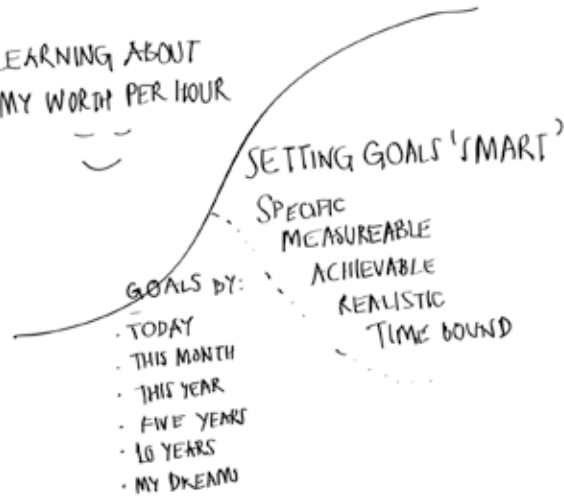 LEARNING ABOUT
MY WORTH PER HOUR
SETTING GOALS 'SMART'
SPECIFIC
MEASUREABLE
ACHIEVABLE
REALISTIC
TIME BOUND
GOALS BY:
· TODAY
· THIS MONTH
· THIS YEAR
· FIVE YEARS
· 10 YEARS
· MY DREAMS